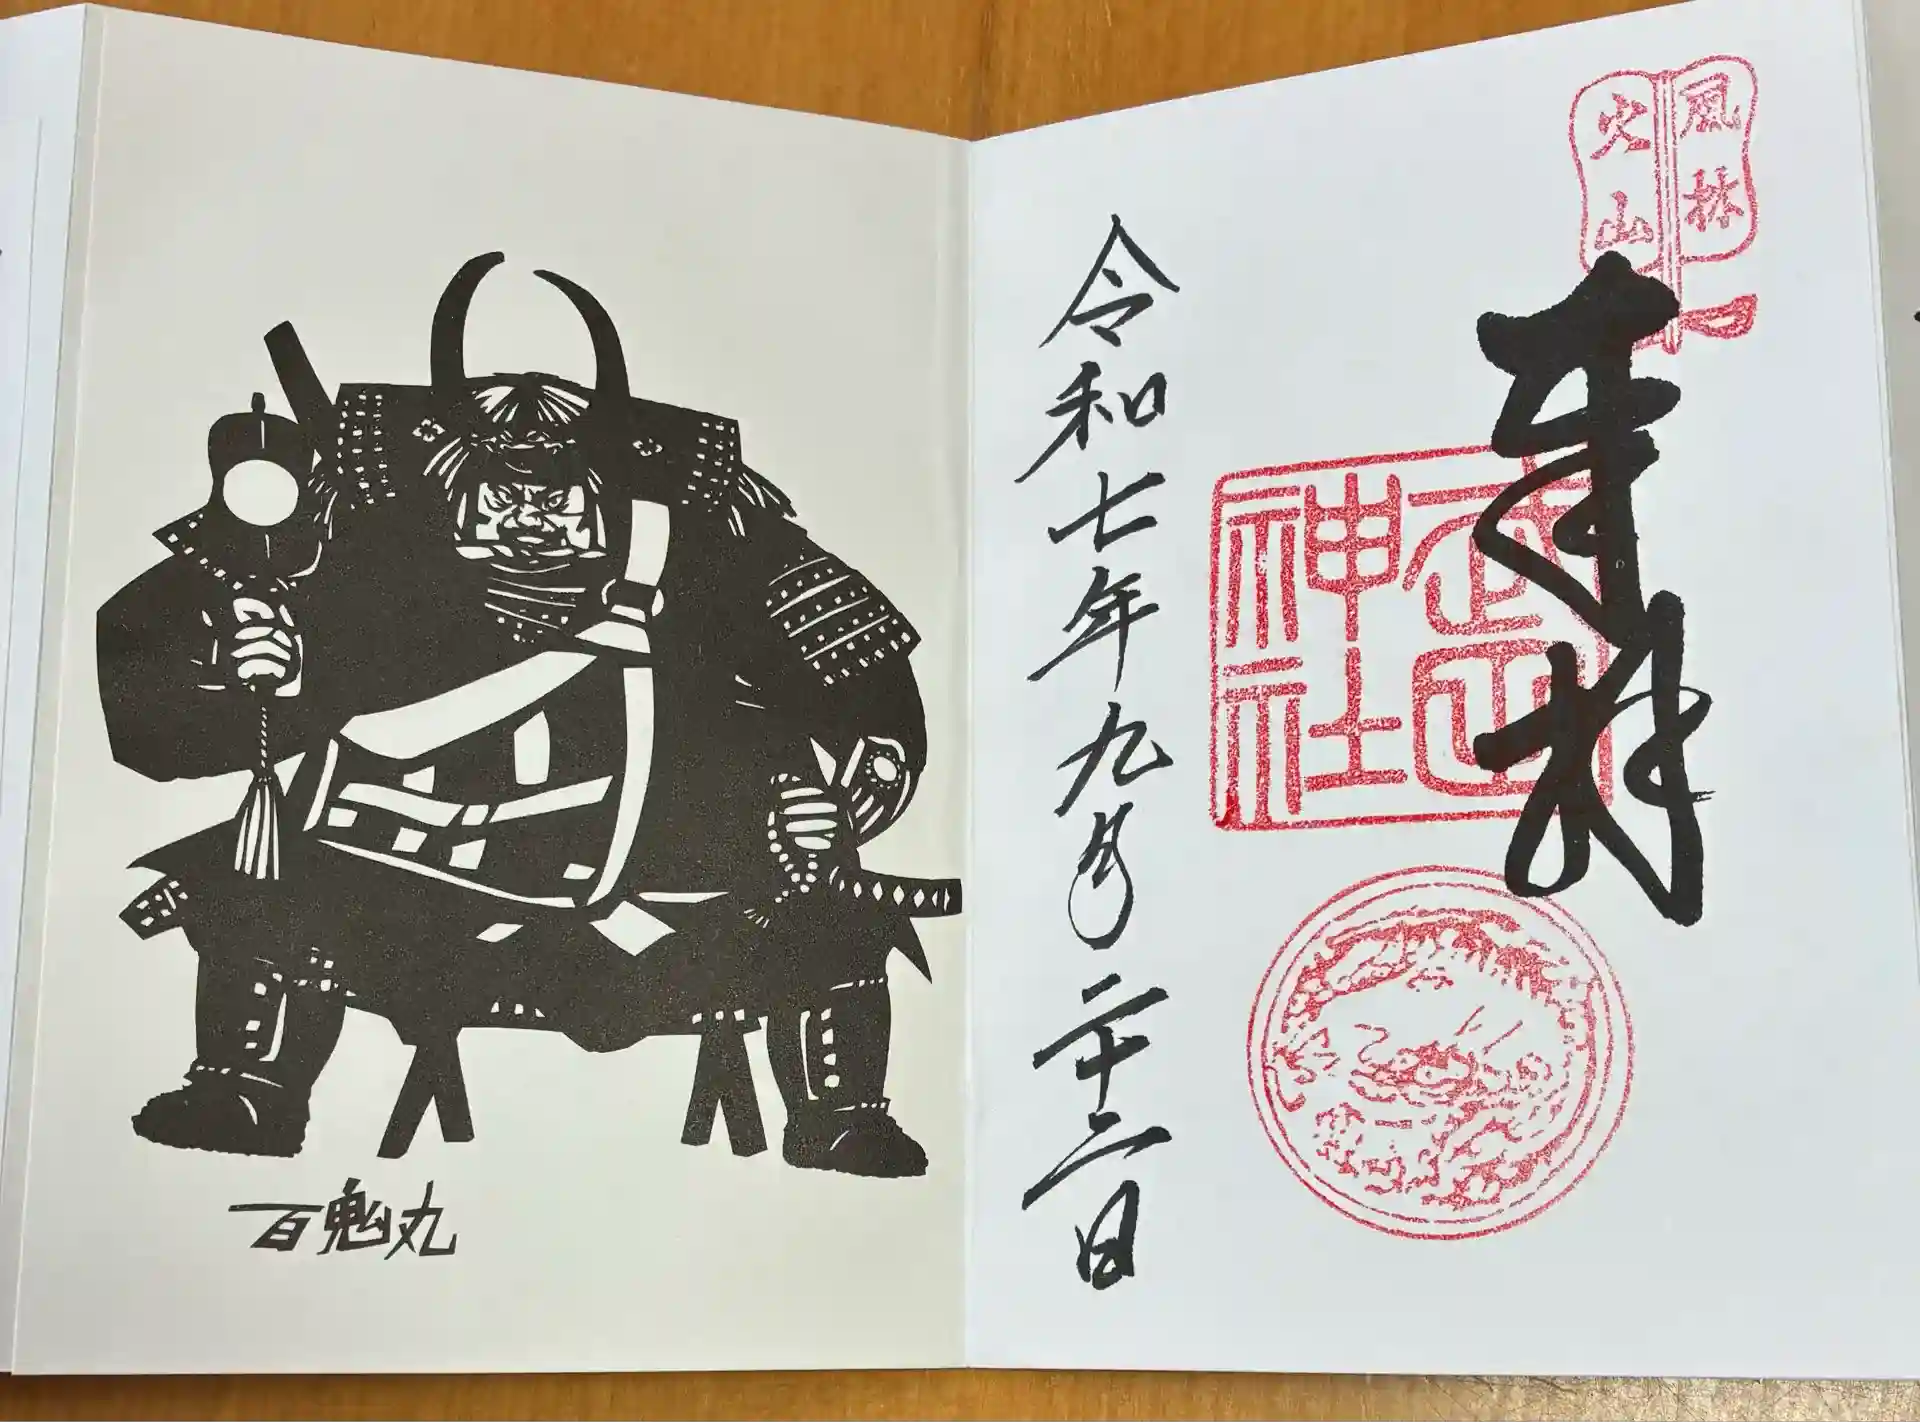 風林
火山
奉拝
武田
神社
令和七年九月二十三日
百鬼丸